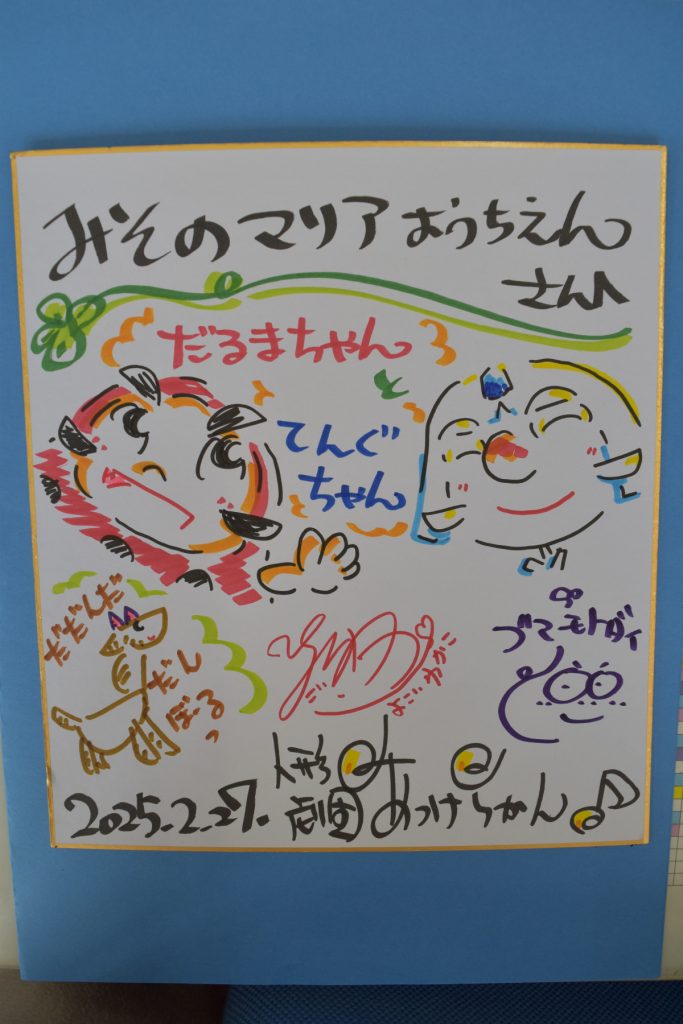 みそのマリア ようちえん
さん♪
だるまちゃん
てんぐ
ちゃん
だだんだ
だん
ぼるっ
よこい わかこ
2025.2.27.
人形
劇団 あっけらかん♪